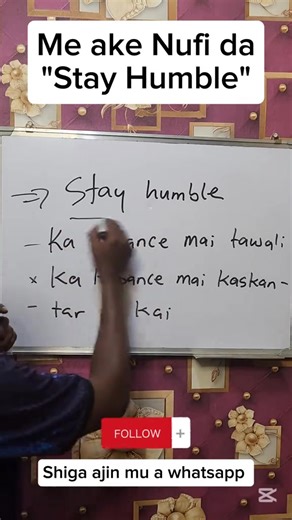 Me ake Nufi da
"Stay Humble"
⇒ Stay humble
- Ka mai tawali
x Ka mai kaskan-
- tar kai
FOLLOW +
Shiga ajin mu a whatsapp